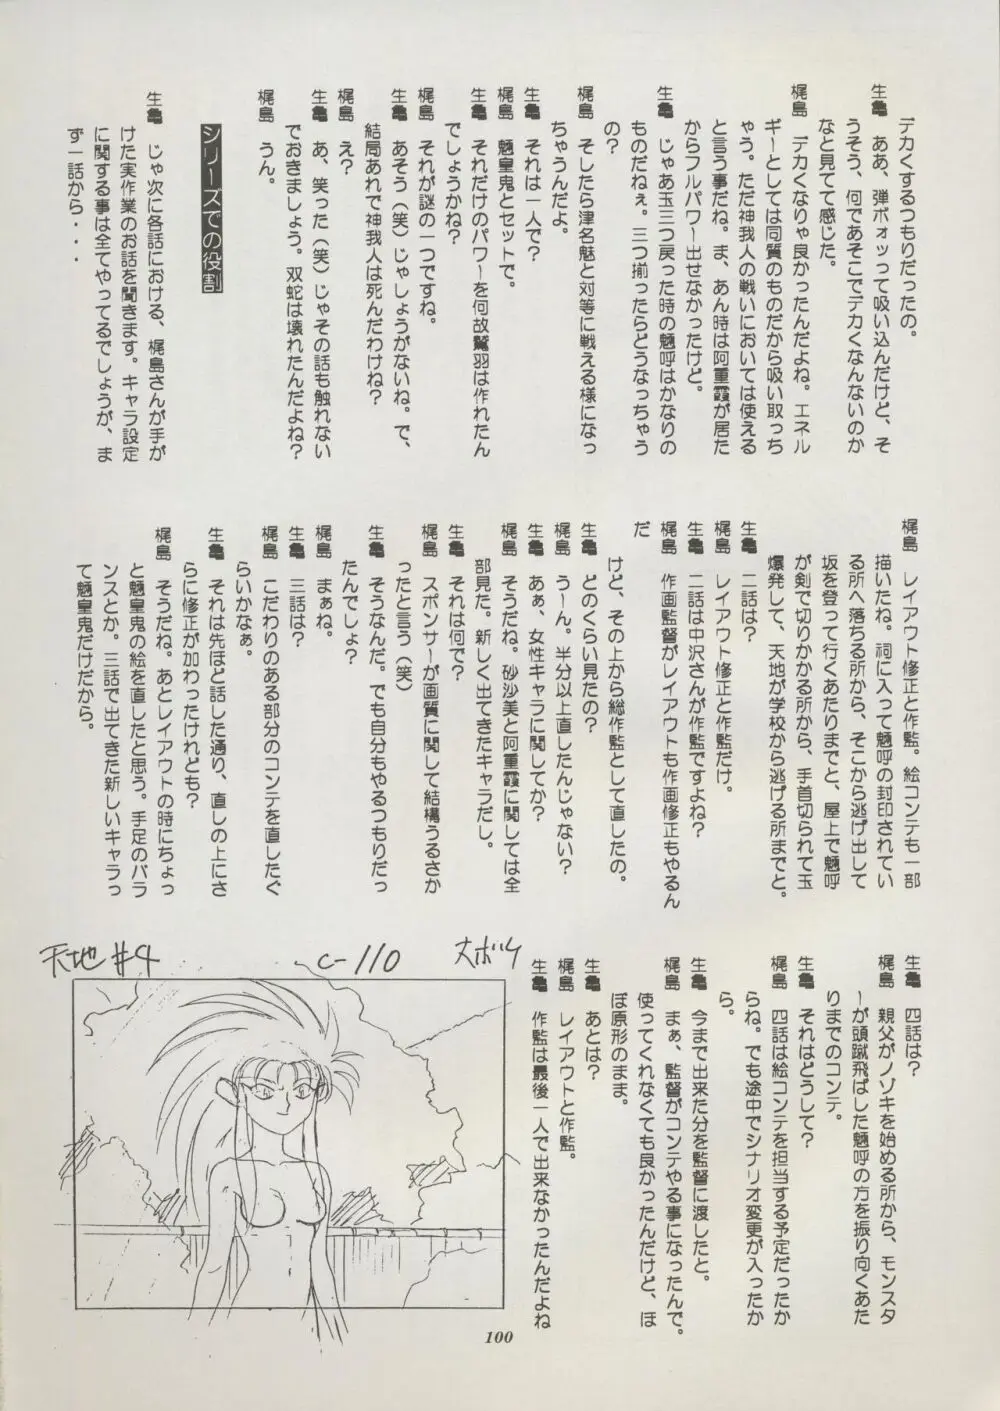 デカくするつもりだったの。
生亀　ああ、弾ボォッって吸い込んだけど、そ
うそう、何であそこでデカくなんないのか
なと見てて感じた。
梶島　デカくなりゃ良かったんだよね。エネル
ギーとしては同質のものだから吸い取っち
ゃう。ただ神我人の戦いにおいては使える
と言う事だね。ま、あん時は阿重霞が居た
からフルパワー出せなかったけど。
生亀　じゃあ玉三つ戻った時の魎呼はかなりの
ものだねぇ。三つ揃ったらどうなっちゃう
の？
梶島　そしたら津名魅と対等に戦える様になっ
ちゃうんだよ。
生亀　それは一人で？
梶島　魎皇鬼とセットで。
生亀　それだけのパワーを何故鷲羽は作れたん
でしょうかね？
梶島　それが謎の一つですね。
生亀　あそう（笑）じゃしょうがないね。で、
結局あれで神我人は死んだわけね？
梶島　え？
生亀　あ、笑った（笑）じゃその話も触れない
でおきましょう。双蛇は壊れたんだよね？
梶島　うん。
シリーズでの役割
生亀　じゃ次に各話における、梶島さんが手が
けた実作業のお話を聞きます。キャラ設定
に関する事は全てやってるでしょうが、ま
ず一話から・・・
梶島　レイアウト修正と作監。絵コンテも一部
描いたね。祠に入って魎呼の封印されてい
る所へ落ちる所から、そこから逃げ出して
坂を登って行くあたりまでと、屋上で魎呼
が剣で切りかかる所から、手首切られて玉
爆発して、天地が学校から逃げる所までと。
生亀　二話は？
梶島　レイアウト修正と作監だけ。
生亀　二話は中沢さんが作監ですよね？
梶島　作画監督がレイアウトも作画修正もやるん
だ
けど、その上から総作監として直したの。
生亀　どのくらい見たの？
梶島　うーん。半分以上直したんじゃない？
生亀　あぁ、女性キャラに関してか？
梶島　そうだね。砂沙美と阿重霞に関しては全
部見た。新しく出てきたキャラだし。
生亀　それは何で？
梶島　スポンサーが画質に関して結構うるさか
ったと言う（笑）
生亀　そうなんだ。でも自分もやるつもりだっ
たんでしょ？
梶島　まぁね。
生亀　三話は？
梶島　こだわりのある部分のコンテを直したぐ
らいかなぁ。
生亀　それは先ほど話した通り、直しの上にさ
らに修正が加わったけれども？
梶島　そうだね。あとレイアウトの時にちょっ
と魎皇鬼の絵を直したと思う。手足のバラ
ンスとか。三話で出てきた新しいキャラっ
て魎皇鬼だけだから。
生亀　四話は？
梶島　親父がノゾキを始める所から、モンスタ
ーが頭蹴飛ばした魎呼の方を振り向くあた
りまでのコンテ。
生亀　それはどうして？
梶島　四話は絵コンテを担当する予定だったか
らね。でも途中でシナリオ変更が入ったか
ら。
生亀　今まで出来た分を監督に渡したと。
梶島　まぁ、監督がコンテやる事になったんで。
使ってくれなくても良かったんだけど、ほ
ぼ原形のまま。
生亀　あとは？
梶島　レイアウトと作監。
生亀　作監は最後一人で出来なかったんだよね
天地#4
C-110
大ボリ
100